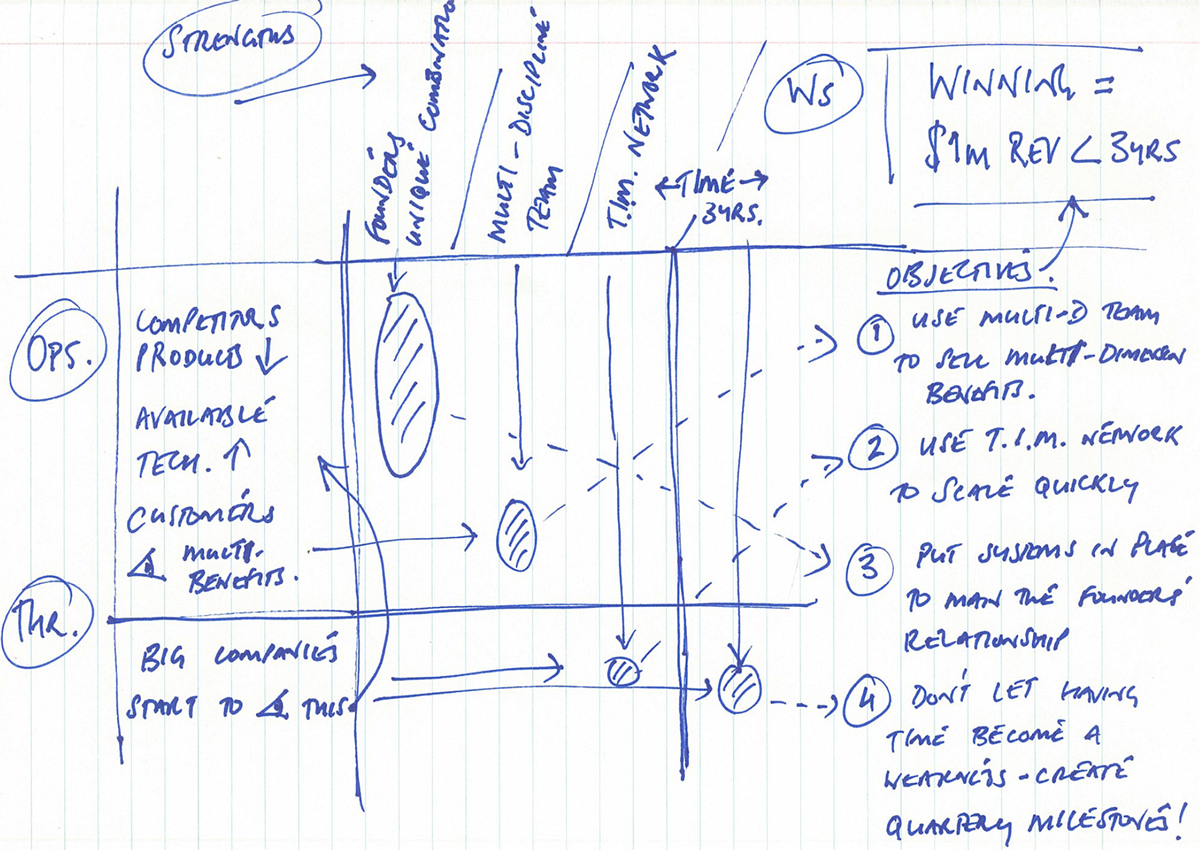 STRENGTHS
FOUNDERS
UNIQUE COMBINATION
MULTI-DISCIPLINE
TEAM
T.I.M. NETWORK
←TIME→
3YRS.
WS
WINNING =
$1M REV < 3YRS
OPS.
COMPETITORS
PRODUCTS ↓
AVAILABLE
TECH. ↑
CUSTOMERS
MULTI-
BENEFITS.
THR.
BIG COMPANIES
START TO THIS
OBJECTIVES.
1 USE MULTI-D TEAM
TO SELL MULTI-DIMENSION
BENEFITS.
2 USE T.I.M. NETWORK
TO SCALE QUICKLY
3 PUT SYSTEMS IN PLACE
TO MAIN THE FOUNDERS'
RELATIONSHIP
4 DON'T LET HAVING
TIME BECOME A
WEAKNESS - CREATE
QUARTERLY MILESTONES!